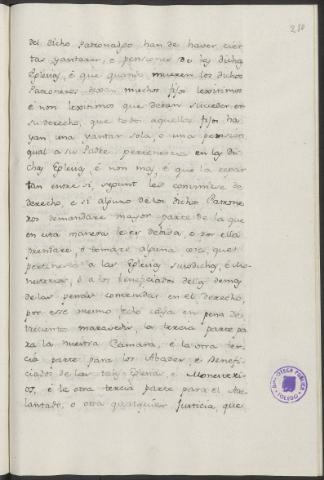 210
del dicho Patronadgo han de haver cier
tas yantares, e pensiones de las dichas
Eglesias, é que quando mueren los dichos
Patroneros dexan muchos fijos lexitimos
é non lexitimos que devan suceder en
su derecho, que todos aquellos fijos ha
yan una yantar sola, e una pension
qual a su Padre pertenecia en las di
chas Eglesias é non mas, é que la repar
tan entre sí, segunt les conviniere de
derecho, e si alguno de los dichos Patrone
ros demandare mayor parte de la que
en esta manera le es devida, e por ella
prendare, o tomare alguna cosa, que
pertenesca a las Eglesias susodichas, é Mo
nesterios, ó a los beneficiados dellas demas
de las penas contenidas en el derecho,
por ese mesmo fecho caya en pena de
trecientos maravedis, la tercia parte pa
ra la nuestra Camara, é la otra ter
cia parte para los Abades, e Benefi
ciados de las tales Eglesias, e Monesteri
os, é la otra tercia parte para el Ade
lantado, o otra qualquier Justicia, que
BIBLIOTECA PUBLICA
TOLEDO